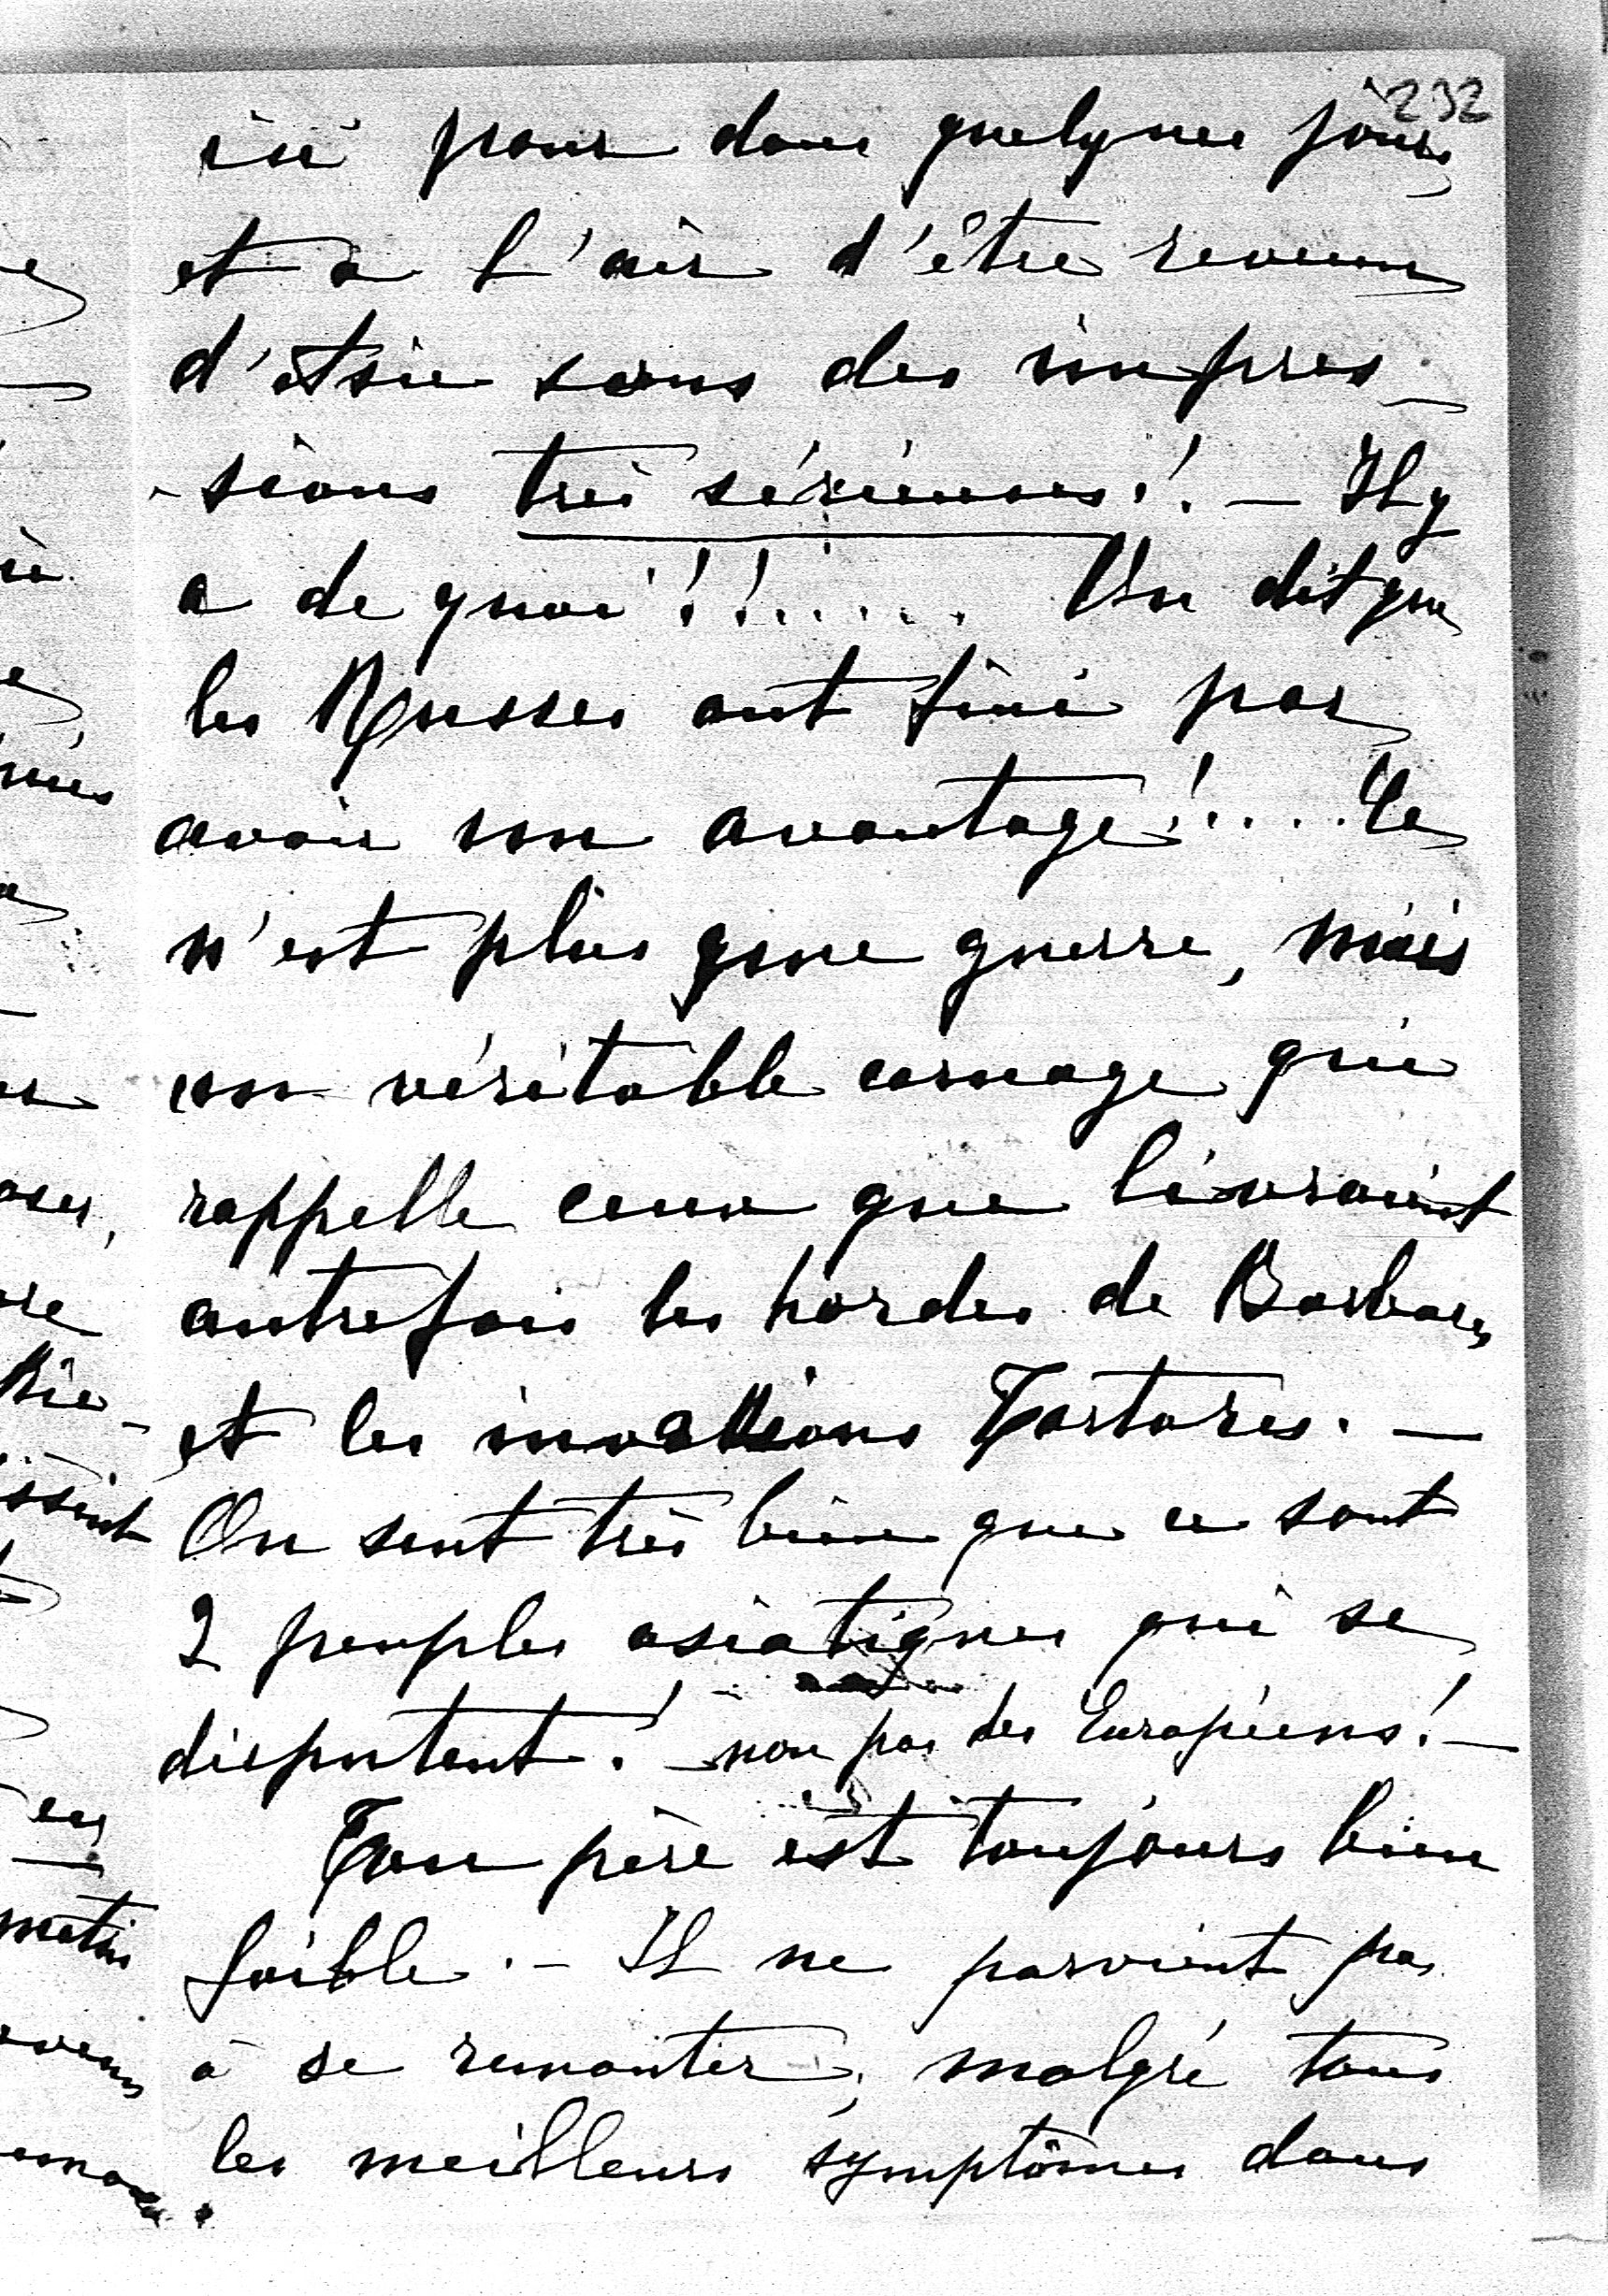 232
ici pour dans quelques jours
et a l'air d'être revenu
d'Asie sous des impres-
-sions très sérieuses! — Il y
a de quoi!!...... On dit que
les Russes ont fini par
avoir un avantage!.... Ce
n'est plus une guerre, mais
un véritable carnage qui
rappelle ceux que livraient
autrefois les hordes de Barbares
et les invasions Tartares. —
On sent très bien que ce sont
2 peuples asiatiques qui se
disputent! — non pas des Européens! —
Ton père est toujours bien
faible. — Il ne parvient pas
à se remonter, malgré tous
les meilleurs symptômes dans